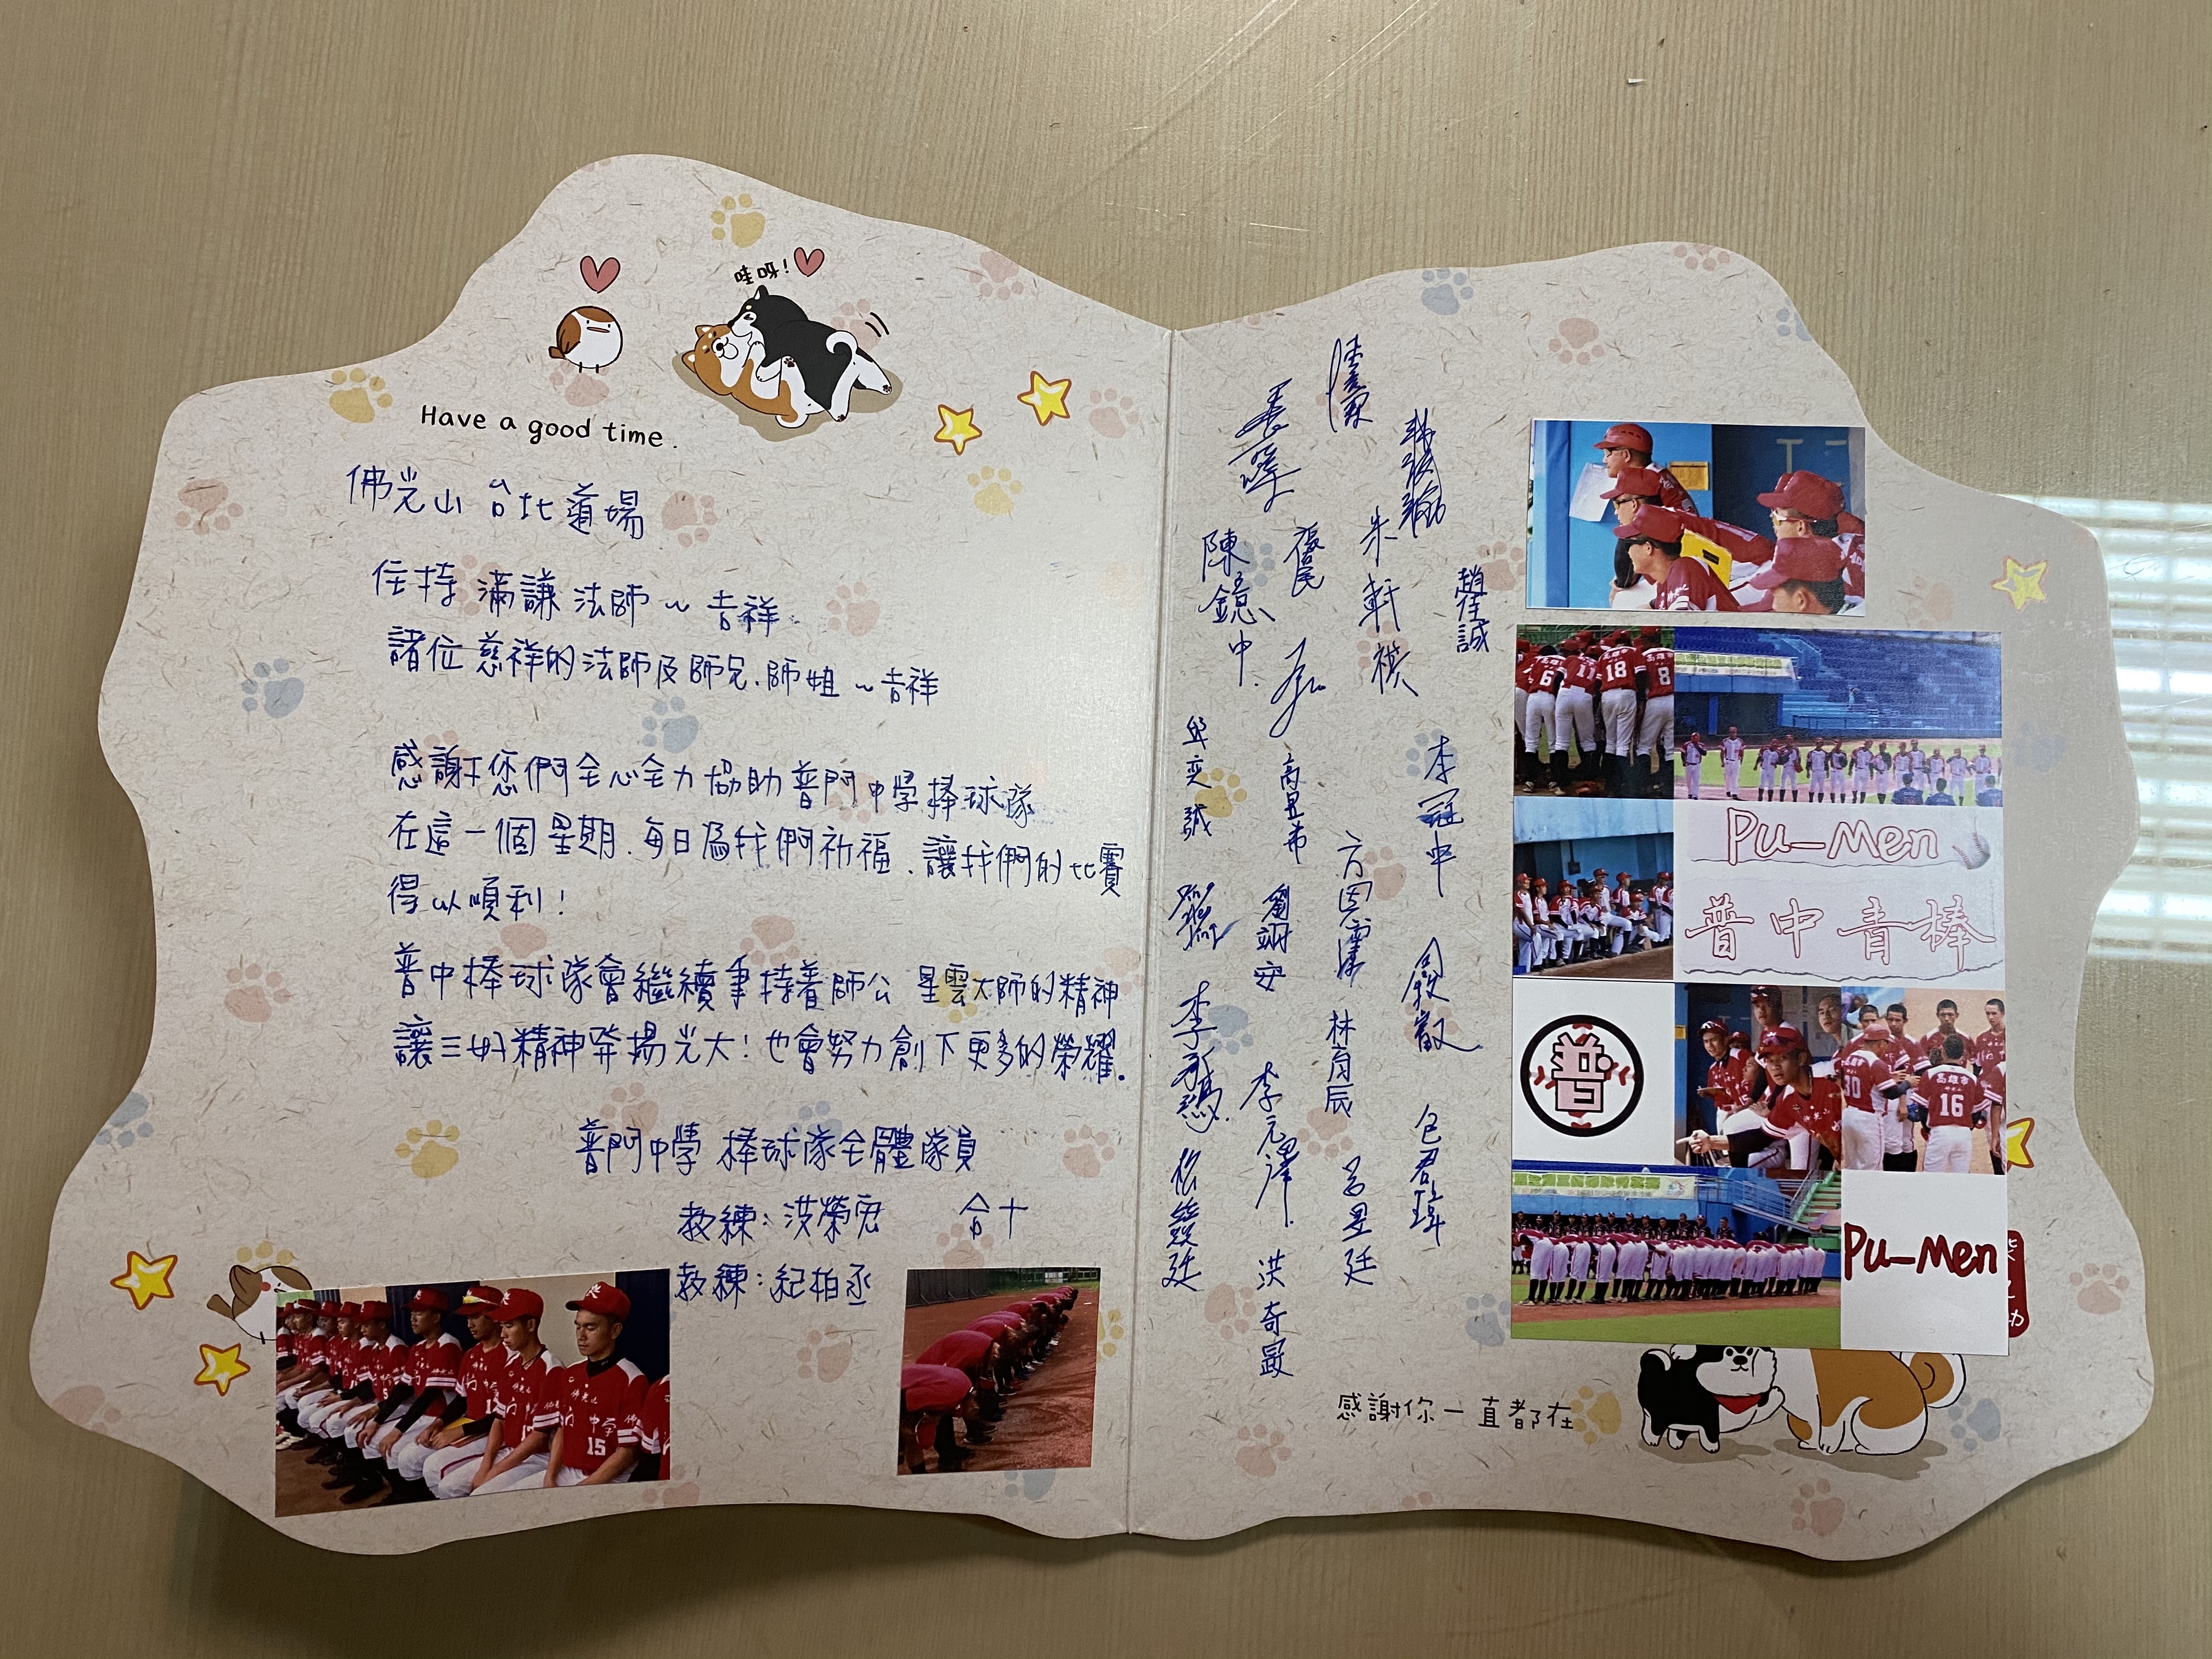 Have a good time.
佛光山 台北道場
住持 滿謙 法師~吉祥
諸位慈祥的法師及師兄.師姐~吉祥
感謝您們全心全力協助普門中學棒球隊
在這一個星期.每日為我們祈福.讓我們的比賽
得以順利!
普中棒球隊會繼續秉持著師公 星雲大師的精神
讓三好精神發揚光大!也會努力創下更多的榮耀.
普門中學 棒球隊全體隊員
教練:洪榮宏 合十
教練:紀柏丞
15
陳鐿中
朱軒祺
邱奕誠
高昱希
李冠中
劉翊安
方恩霈
林育辰
李元澤
包君瑋
呂昱廷
洪奇毅
6 11 18 8
Pu-Men
普中青棒
普
30
高雄市
16
Pu-Men
感謝你一直都在